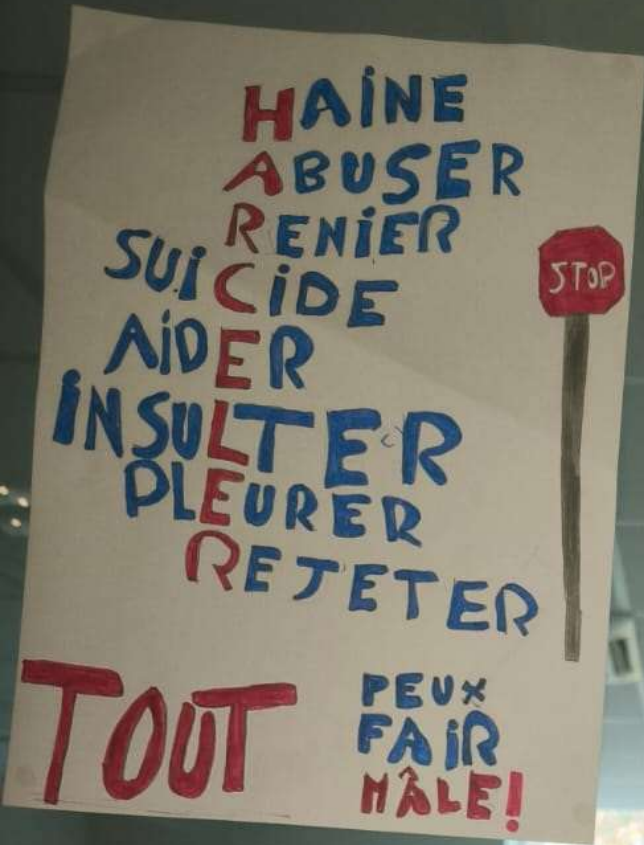 HAiNE
ABUSER
RENiER
SUiCiDE
STOP
AiDER
iNSULTER
PLEURER
REJETER
TOUT
PEUX
FAiR
MÂLE!